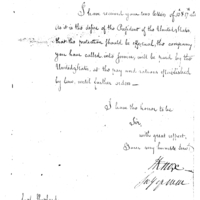 I have received your two letters of 12th & 17th
as it is the desire of the President of the United States
that the protection should be afforded, the company
you have called into service, will be paid by the
United States, at the pay and rations established
by law, until further orders —
I have the honor to be
Sir,
with great respect,
Your very humble servt
H Knox